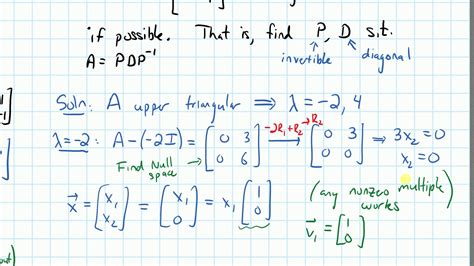 if possible. That is, find P, D s.t.
A = PDP⁻¹
invertible diagonal
Soln: A upper triangular ⟹ λ = -2, 4
λ = -2: A - (-2I) = [0 3; 0 6] -2R₁+R₂→R₂ [0 3; 0 0] ⟹ 3x₂ = 0
x₂ = 0
Find Null
space
x⃗ = [x₁; x₂] = [x₁; 0] = x₁ [1; 0]
(any nonzero multiple)
works
v⃗₁ = [1; 0]